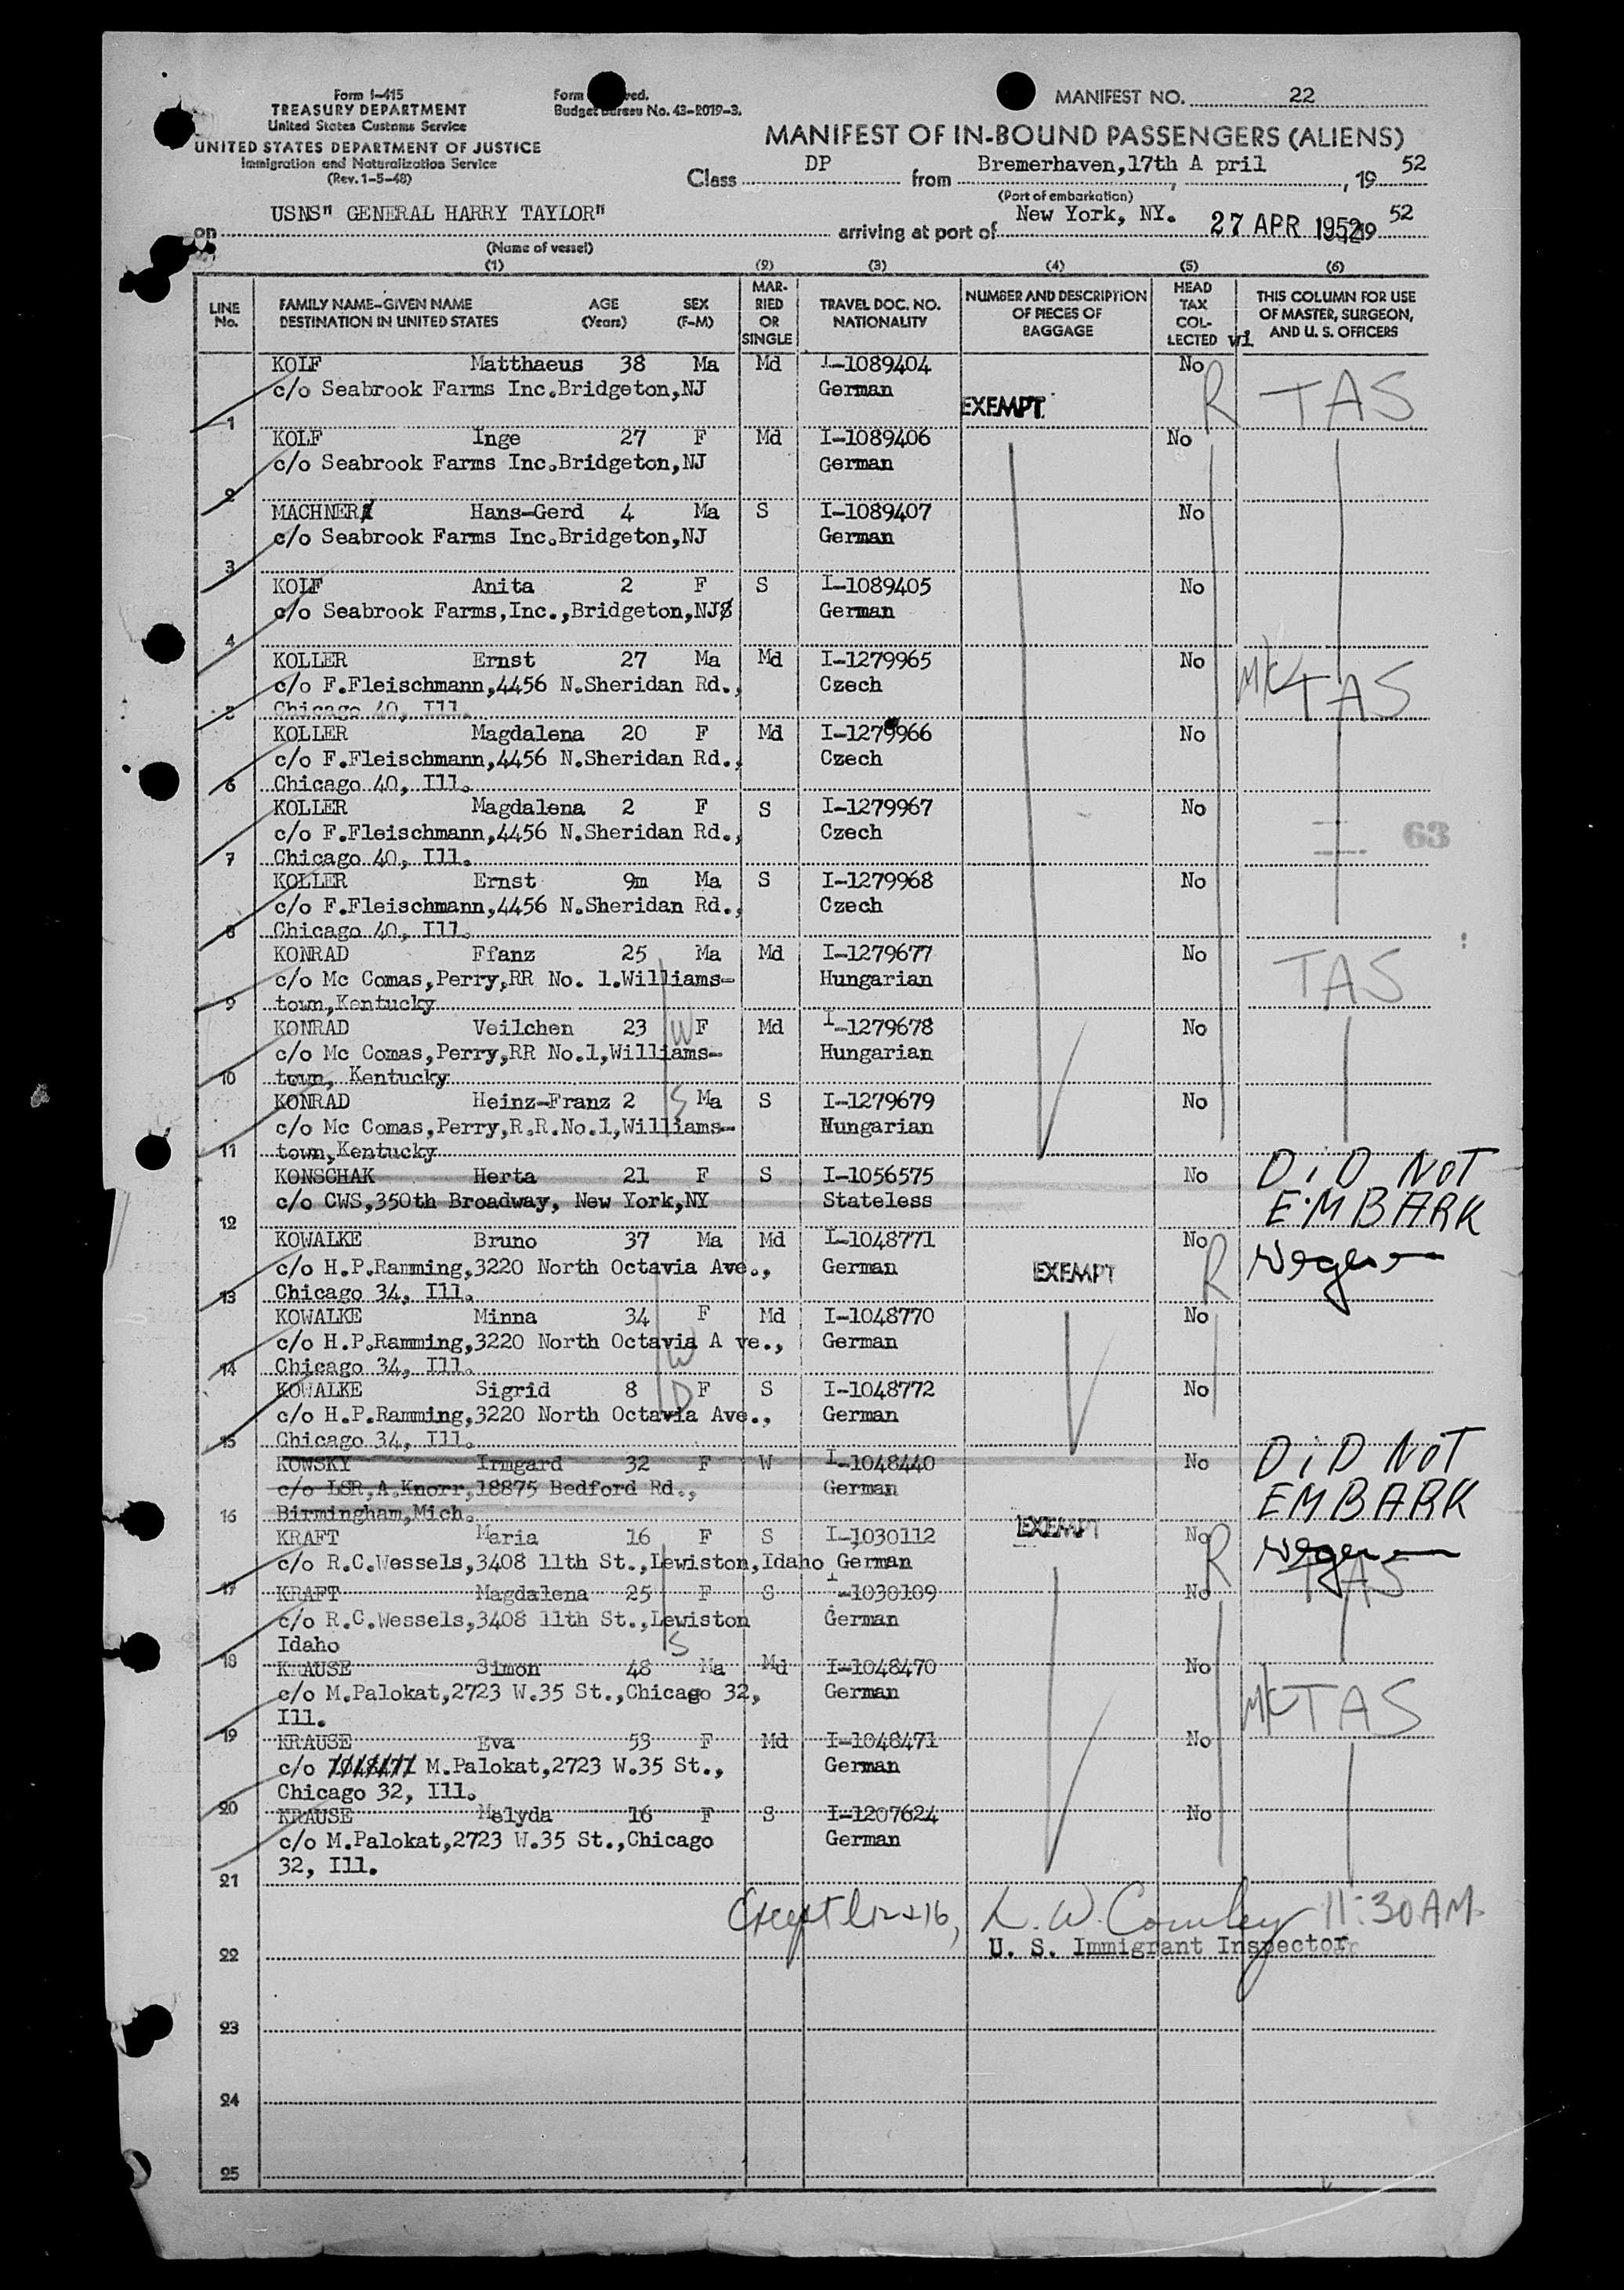 Form I-415
TREASURY DEPARTMENT
United States Customs Service
UNITED STATES DEPARTMENT OF JUSTICE
Immigration and Naturalization Service
(Rev. 1-5-48)
Form ved.
Budget Bureau No. 43-R019-3.
MANIFEST NO. 22
MANIFEST OF IN-BOUND PASSENGERS (ALIENS)
Class DP from Bremerhaven,17th A pril, 19 52
(Port of embarkation)
on USNS" GENERAL HARRY TAYLOR" arriving at port of New York, NY. 27 APR 1952 19 52
(Name of vessel)
(1) (2) (3) (4) (5) (6)
LINE No. FAMILY NAME-GIVEN NAME DESTINATION IN UNITED STATES AGE (Years) SEX (F-M) MARRIED OR SINGLE TRAVEL DOC. NO. NATIONALITY NUMBER AND DESCRIPTION OF PIECES OF BAGGAGE HEAD TAX COLLECTED wi THIS COLUMN FOR USE OF MASTER, SURGEON, AND U. S. OFFICERS
KOLF Matthaeus 38 Ma Md I-1089404 No
c/o Seabrook Farms Inc.Bridgeton,NJ German EXEMPT R TAS
1
KOLF Inge 27 F Md I-1089406 No
c/o Seabrook Farms Inc.Bridgeton,NJ German
2
MACHNER Hans-Gerd 4 Ma S I-1089407 No
c/o Seabrook Farms Inc.Bridgeton,NJ German
3
KOLF Anita 2 F S I-1089405 No
c/o Seabrook Farms,Inc.,Bridgeton,NJ German
4
KOLLER Ernst 27 Ma Md I-1279965 No
c/o F.Fleischmann,4456 N.Sheridan Rd., Czech TAS
5 Chicago 40, Ill.
KOLLER Magdalena 20 F Md I-1279966 No
c/o F.Fleischmann,4456 N.Sheridan Rd., Czech
6 Chicago 40, Ill.
KOLLER Magdalena 2 F S I-1279967 No
c/o F.Fleischmann,4456 N.Sheridan Rd., Czech 63
7 Chicago 40, Ill.
KOLLER Ernst 9m Ma S I-1279968 No
c/o F.Fleischmann,4456 N.Sheridan Rd., Czech
8 Chicago 40, Ill.
KONRAD Ffanz 25 Ma Md I-1279677 No
c/o Mc Comas,Perry,RR No. 1.Williams- Hungarian TAS
9 town,Kentucky
KONRAD Veilchen 23 W F Md I-1279678 No
c/o Mc Comas,Perry,RR No.1,Williams- Hungarian
10 town, Kentucky
KONRAD Heinz-Franz 2 S Ma S I-1279679 No
c/o Mc Comas,Perry,R.R.No.1,Williams- Hungarian
11 town,Kentucky
KONSCHAK Herta 21 F S I-1056575 No DiD NOT
c/o CWS,350th Broadway, New York,NY Stateless EMBARK
12
KOWALKE Bruno 37 Ma Md I-1048771 No
c/o H.P.Ramming,3220 North Octavia Ave., German EXEMPT R
13 Chicago 34, Ill.
KOWALKE Minna 34 F Md I-1048770 No
c/o H.P.Ramming,3220 North Octavia A ve., German
14 Chicago 34, Ill. W
KOWALKE Sigrid 8 D F S I-1048772 No
c/o H.P.Ramming,3220 North Octavia Ave., German
15 Chicago 34, Ill.
KOWSKY Irmgard 32 F W I-1048440 No DiD NOT
c/o LSR,A.Knorr,18875 Bedford Rd., German EMBARK
16 Birmingham,Mich.
KRAFT Maria 16 F S I-1030112 EXEMPT No R
c/o R.C.Wessels,3408 11th St.,Lewiston,Idaho German TAS
17
KRAFT Magdalena 25 F S I-1030109 No
c/o R.C.Wessels,3408 11th St.,Lewiston German
Idaho S
18
KRAUSE Simon 48 Ma Md I-1048470 No
c/o M.Palokat,2723 W.35 St.,Chicago 32, German TAS
Ill.
19
KRAUSE Eva 53 F Md I-1048471 No
c/o 1048471 M.Palokat,2723 W.35 St., German
Chicago 32, Ill.
20
KRAUSE Melyda 16 F S I-1207624 No
c/o M.Palokat,2723 W.35 St.,Chicago German
32, Ill.
21
Except l 12 + 16, 11:30 AM.
U. S. Immigrant Inspector
22
23
24
25